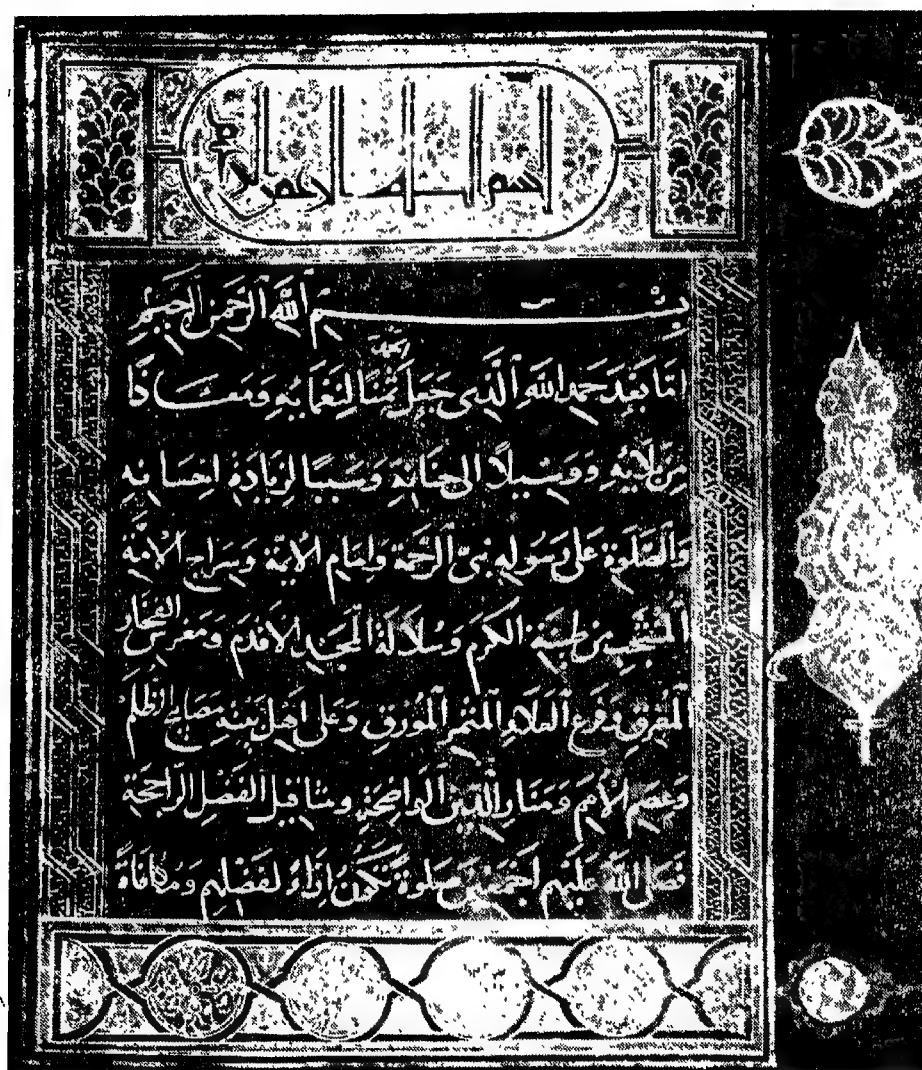 بسم الله الرحمن الرحيم
بِسْمِ اللهِ الرَّحْمٰنِ الرَّحِيمِ
اَمَّا بَعْدَ حَمْدِ اللهِ الَّذِى جَعَلَ الحمد ثَمَنًا لِنَعْمَائِهِ وَمَعَاذًا
مِنْ بَلَائِهِ وَوَسِيلًا اِلى جِنَانِهِ وَسَبَبًا لِزِيَادَةِ اِحْسَانِهِ
وَالصَّلٰوةِ عَلى رَسُولِهِ نَبِىِّ الرَّحْمَةِ وَاِمَامِ الْاَئِمَّةِ وَسِرَاجِ الْاُمَّةِ
الْمُنْتَجَبِ مِنْ طِينَةِ الْكَرَمِ وَسُلَالَةِ الْمَجْدِ الْاَقْدَمِ وَمَغْرِسِ الْفَخَارِ
الْمُعْرِقِ وَفَرْعِ الْعَلَاءِ الْمُثْمِرِ الْمُورِقِ وَعَلى اَهْلِ بَيْتِهِ مَصَابِيحِ الظُّلَمِ
وَعِصَمِ الْاُمَمِ وَمَنَارِ الدِّينِ الْوَاضِحَةِ وَمَثَاقِيلِ الْفَضْلِ الرَّاجِحَةِ
فَصَلَّى اللهُ عَلَيْهِمْ اَجْمَعِينَ صَلٰوةً تَكُونُ اِزَاءً لِفَضْلِهِمْ وَمُكَافَاةً